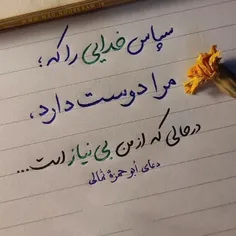 سپاس خدایی را که؛
مرا دوست دارد،
درحالی که از من بی نیاز است...
دعای ابوحمزه ثمالی